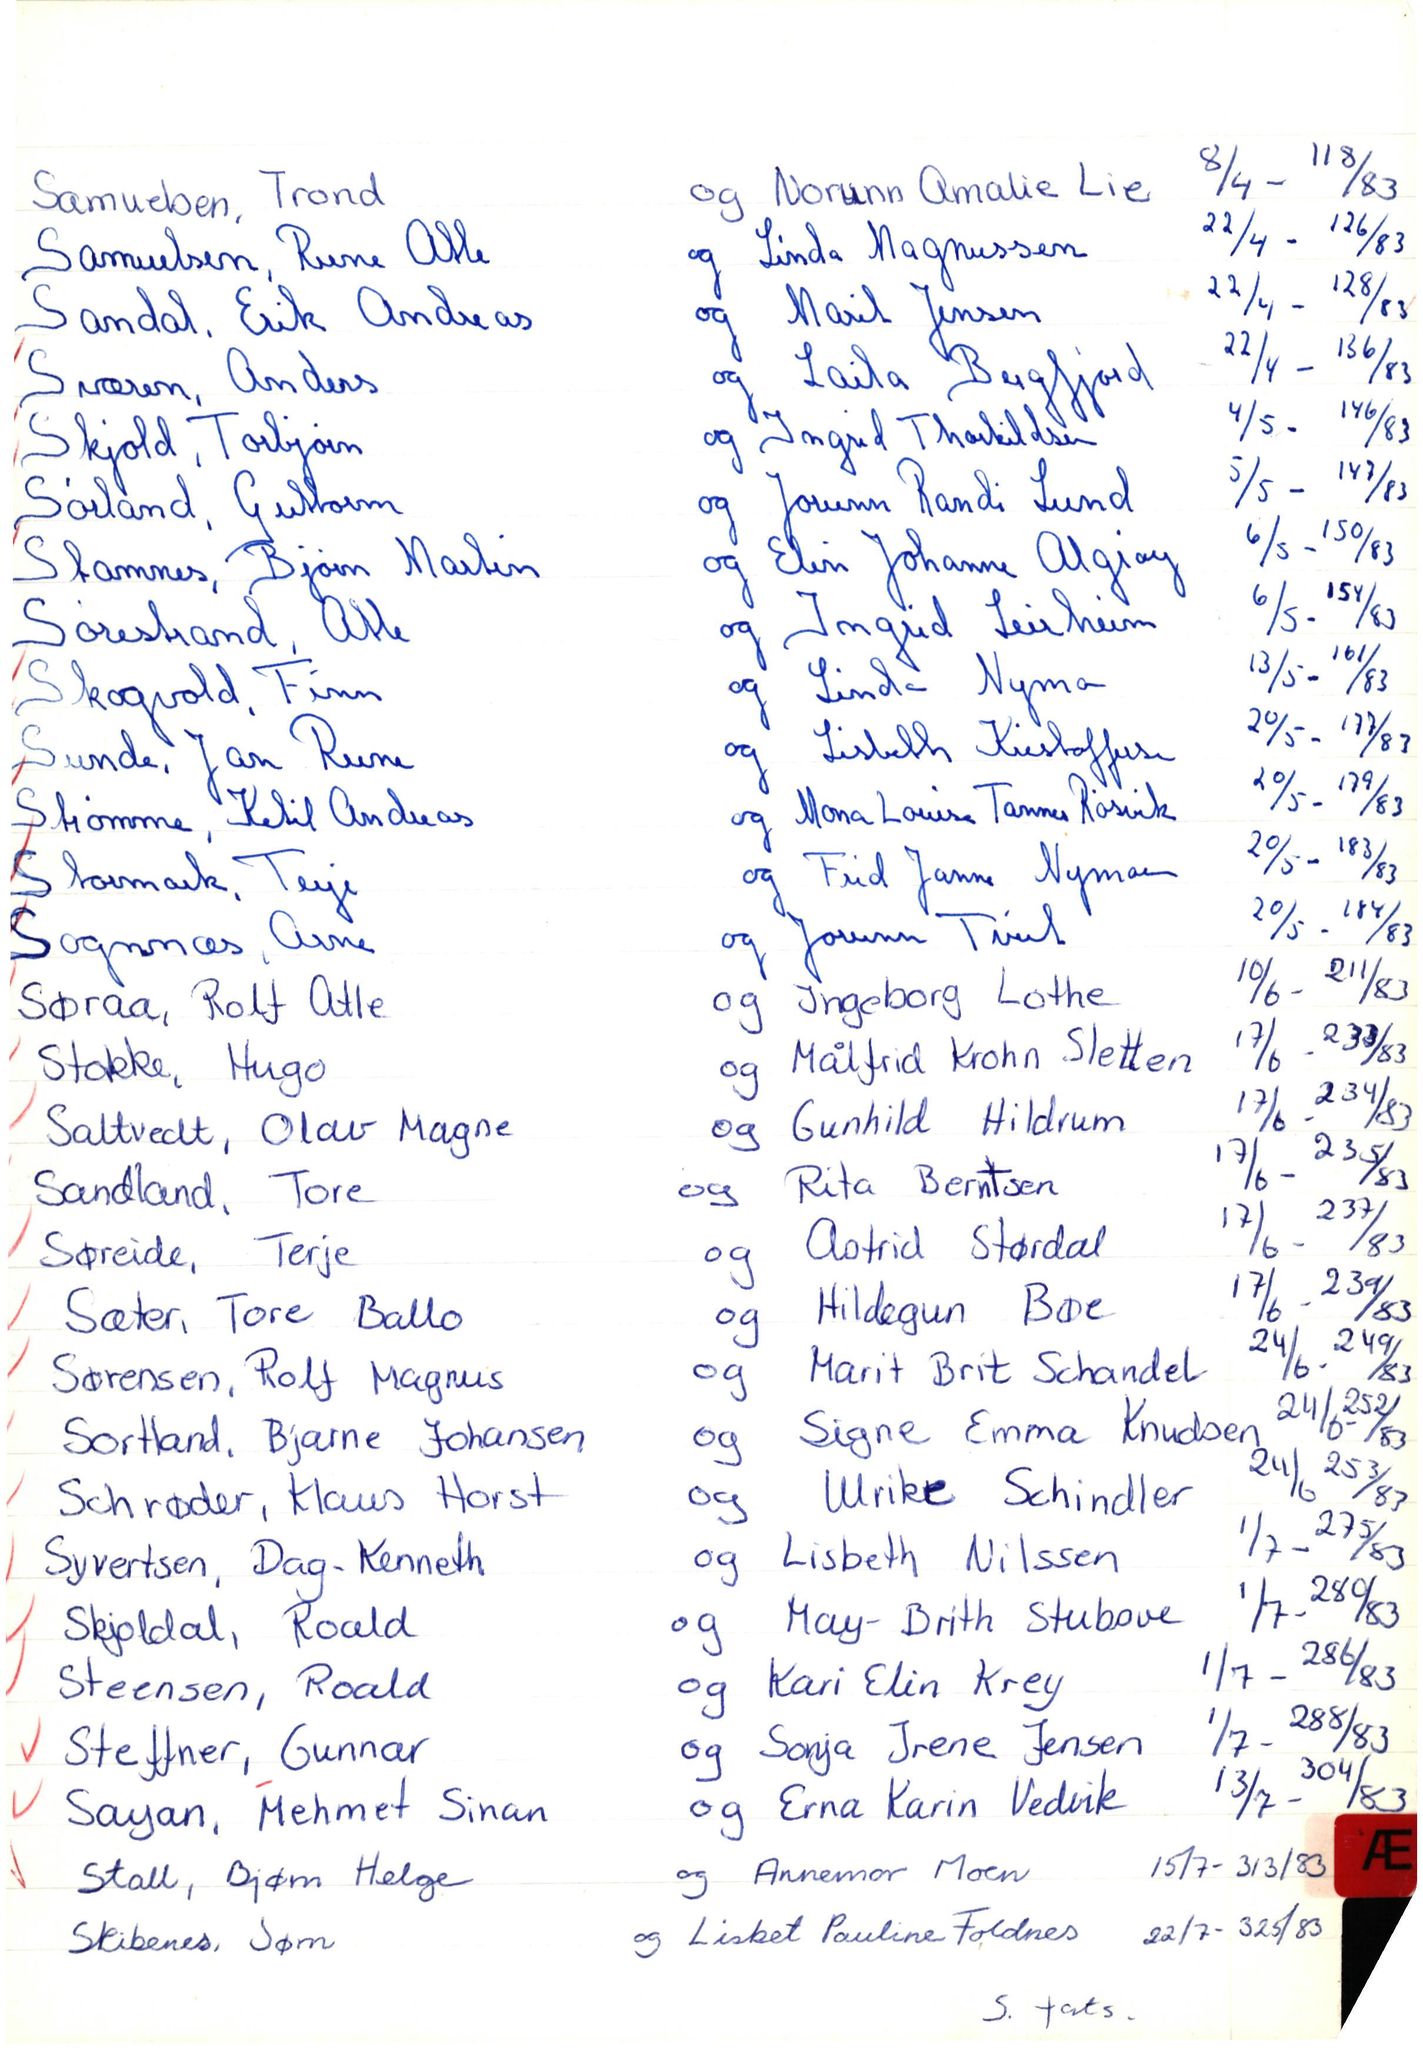 Samuelsen, Trond og Norunn Amalie Lie 8/4 - 118/83
Samuelsen, Rune Atle og Linda Magnussen 22/4 - 126/83
Sandal, Erik Andreas og Marit Jensen 22/4 - 128/83
Sværen, Anders og Laila Bergfjord 22/4 - 136/83
Skjold, Torbjørn og Ingrid Thorkildsen 4/5 - 146/83
Sørland, Guttorm og Jorunn Randi Lund 5/5 - 147/83
Stamnes, Bjørn Martin og Elin Johanne Algrøy 6/5 - 150/83
Sørestrand, Atle og Ingrid Leirheim 6/5 - 154/83
Skogvold, Finn og Linda Nyman 13/5 - 161/83
Sunde, Jan Rune og Lisbeth Kristoffersen 20/5 - 177/83
Strømme, Ketil Andreas og Mona Louise Tannes Røsvik 20/5 - 179/83
Stormark, Terje og Frid Janne Nyman 20/5 - 183/83
Sognnæs, Arne og Jorunn Tveit 20/5 - 184/83
Søraa, Rolf Atle og Ingeborg Lothe 10/6 - 211/83
Stokke, Hugo og Målfrid Krohn Sletten 17/6 - 233/83
Saltvedt, Olav Magne og Gunhild Hildrum 17/6 - 234/83
Sandland, Tore og Rita Berntsen 17/6 - 235/83
Søreide, Terje og Astrid Størdal 17/6 - 237/83
Sæter, Tore Ballo og Hildegun Bøe 17/6 - 239/83
Sørensen, Rolf Magnus og Marit Brit Schandel 24/6 - 249/83
Sortland, Bjarne Johansen og Signe Emma Knudsen 24/6 - 252/83
Schrøder, Klaus Horst og Ulrike Schindler 24/6 253/83
Syvertsen, Dag-Kenneth og Lisbeth Nilssen 1/7 - 275/83
Skjoldal, Roald og May-Brith Stubøve 1/7 - 280/83
Steensen, Roald og Kari Elin Krey 1/7 - 286/83
Steffner, Gunnar og Sonja Irene Jensen 1/7 - 288/83
Sayan, Mehmet Sinan og Erna Karin Vedvik 13/7 - 304/83
Stall, Bjørn Helge og Annemor Moen 15/7 - 313/83
Æ
Skibenes, Jørn og Lisbet Pauline Foldnes 22/7 - 325/83
S. forts.